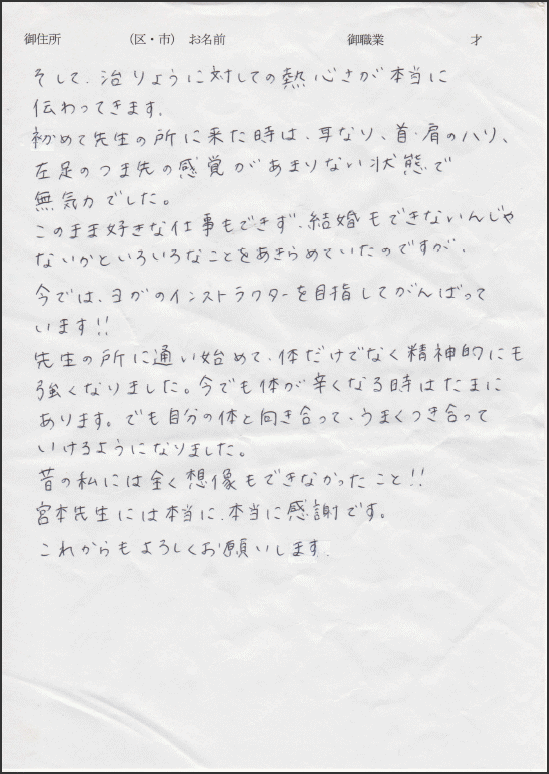 御住所　（区・市）　お名前　御職業　才
そして、治りょうに対しての熱心さが本当に
伝わってきます。
初めて先生の所に来た時は、耳なり、首・肩のハリ、
左足のつま先の感覚があまりない状態で
無気力でした。
このまま好きな仕事もできず、結婚もできないんじゃ
ないかといろいろなことをあきらめていたのですが、
今では、ヨガのインストラクターを目指してがんばって
います!!
先生の所に通い始めて、体だけでなく精神的にも
強くなりました。今でも体が辛くなる時はたまに
あります。でも自分の体と向き合って、うまくつき合って
いけるようになりました。
昔の私には全く想像もできなかったこと!!
宮本先生には本当に、本当に感謝です。
これからもよろしくお願いします.